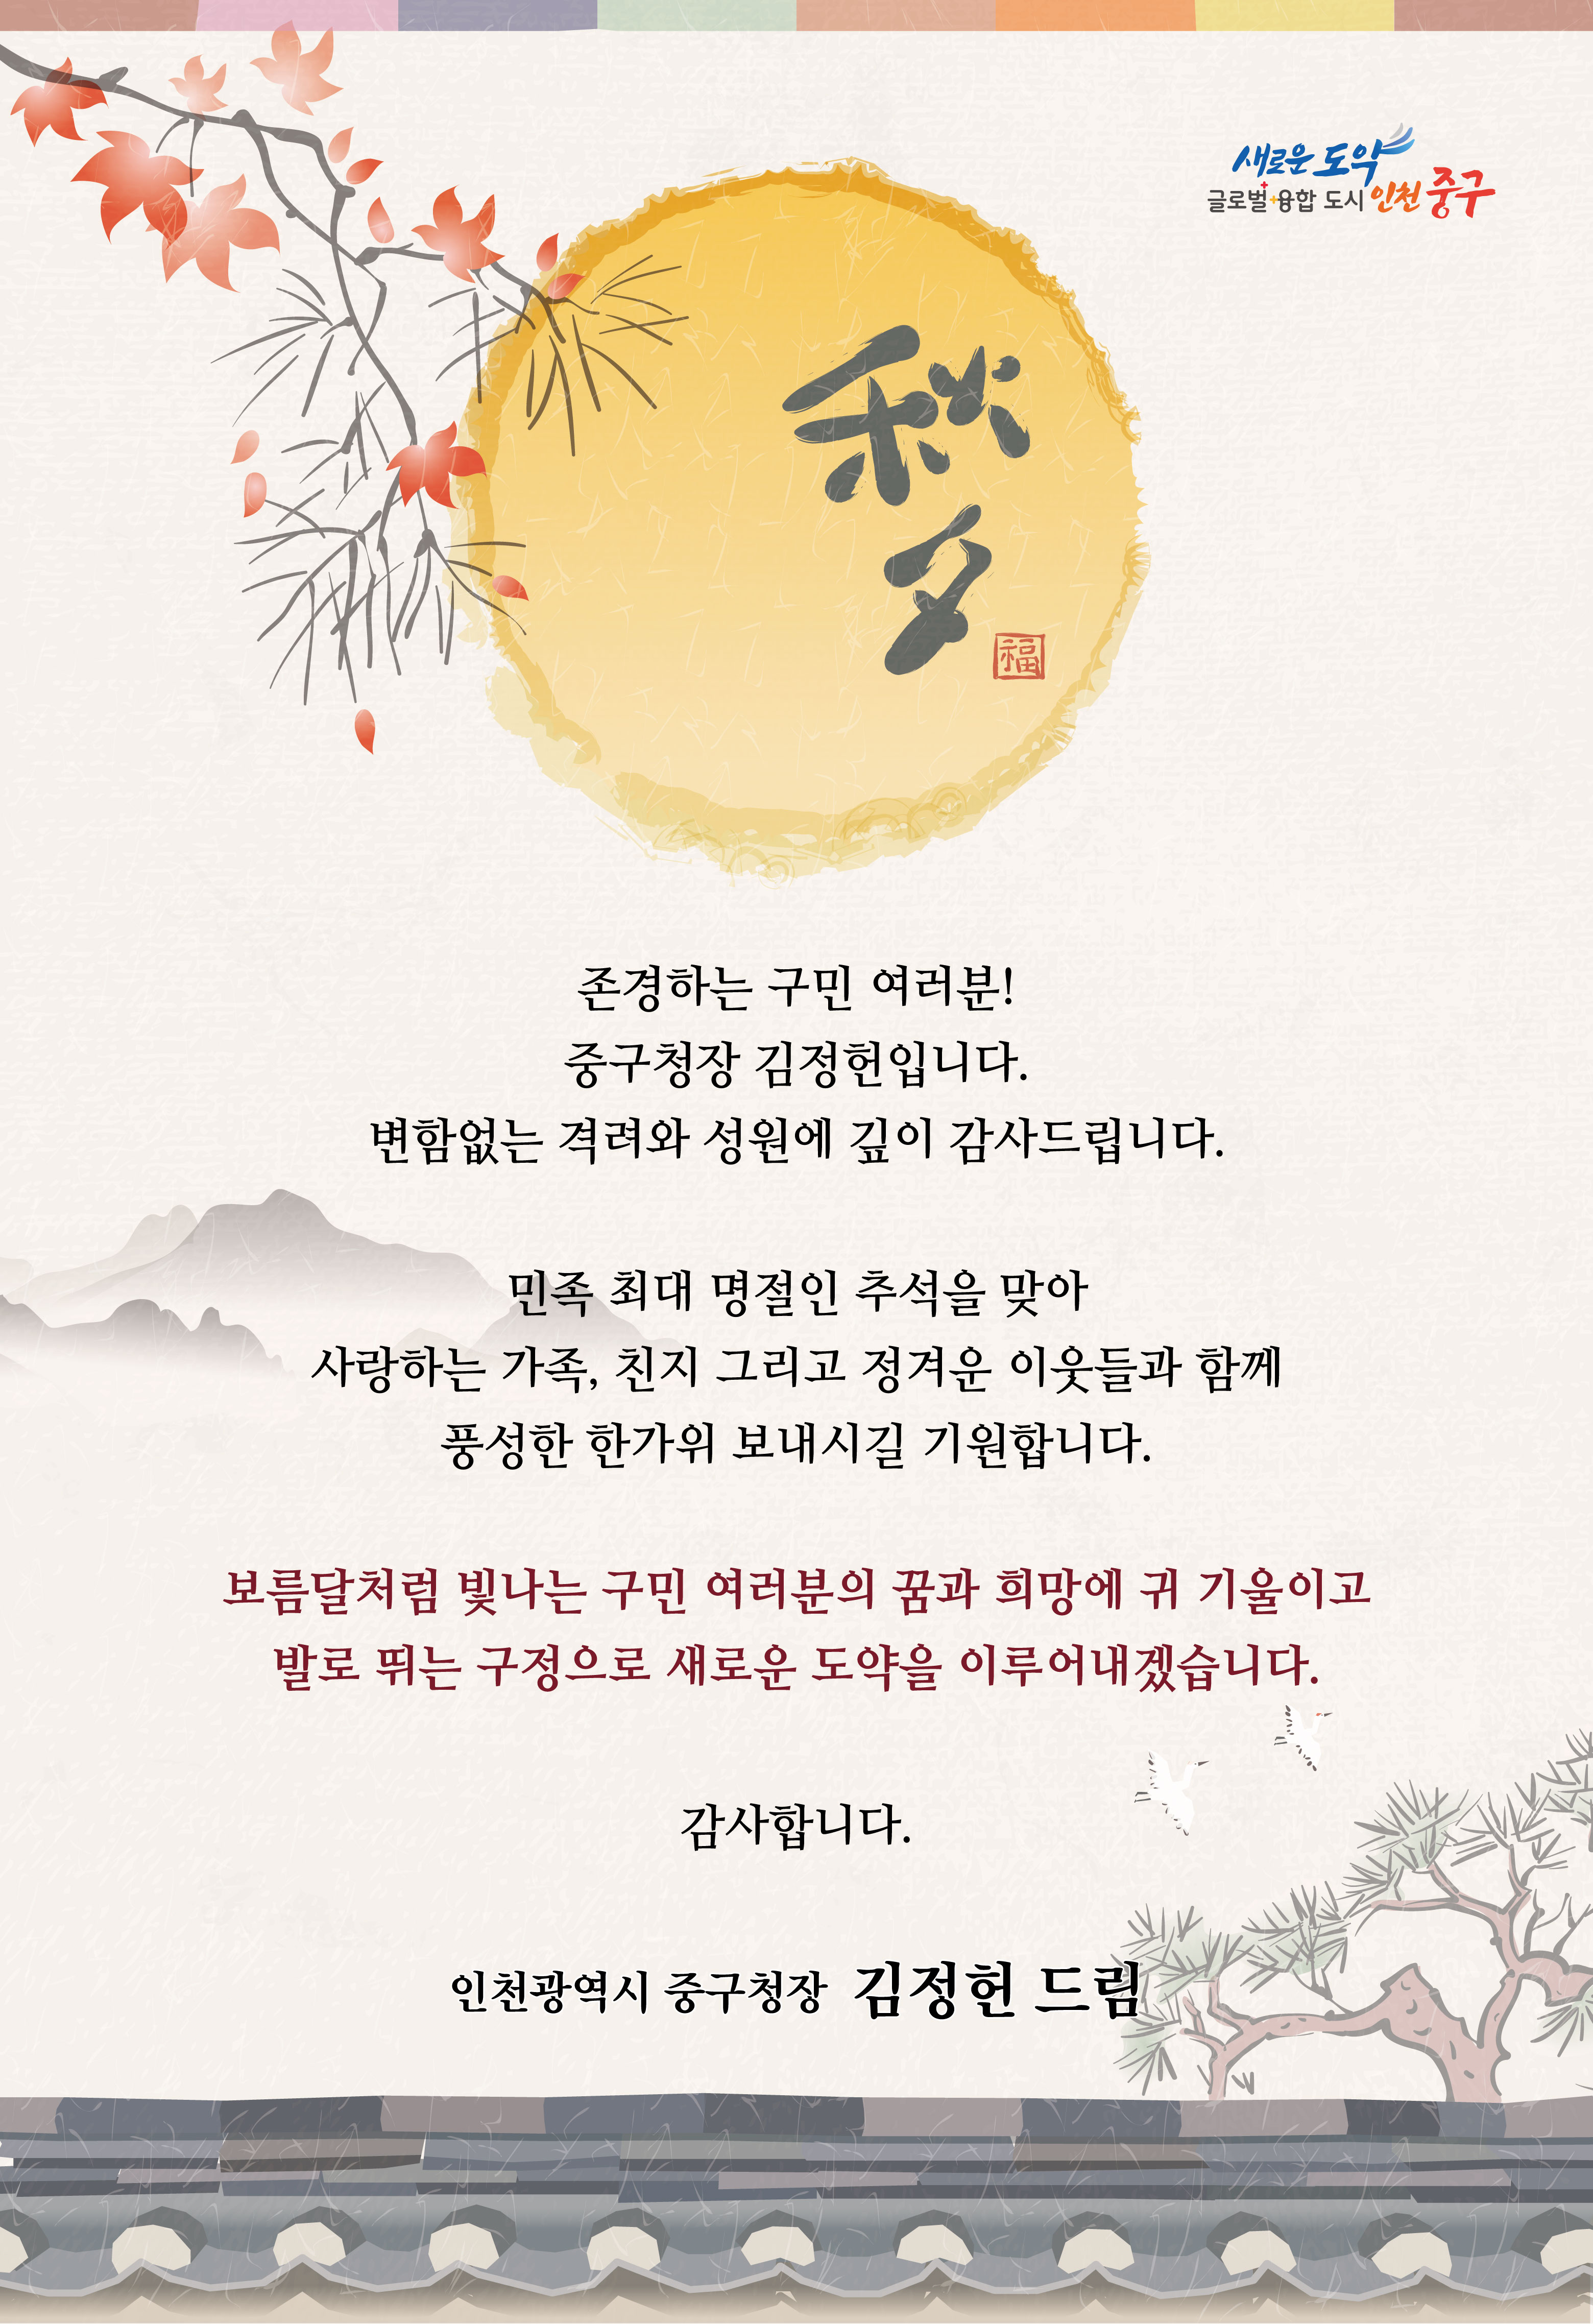 새로운 도약
글로벌+융합 도시 인천 중구
秋
夕
福
존경하는 구민 여러분!
중구청장 김정헌입니다.
변함없는 격려와 성원에 깊이 감사드립니다.
민족 최대 명절인 추석을 맞아
사랑하는 가족, 친지 그리고 정겨운 이웃들과 함께
풍성한 한가위 보내시길 기원합니다.
보름달처럼 빛나는 구민 여러분의 꿈과 희망에 귀 기울이고
발로 뛰는 구정으로 새로운 도약을 이루어내겠습니다.
감사합니다.
인천광역시 중구청장 김정헌 드림